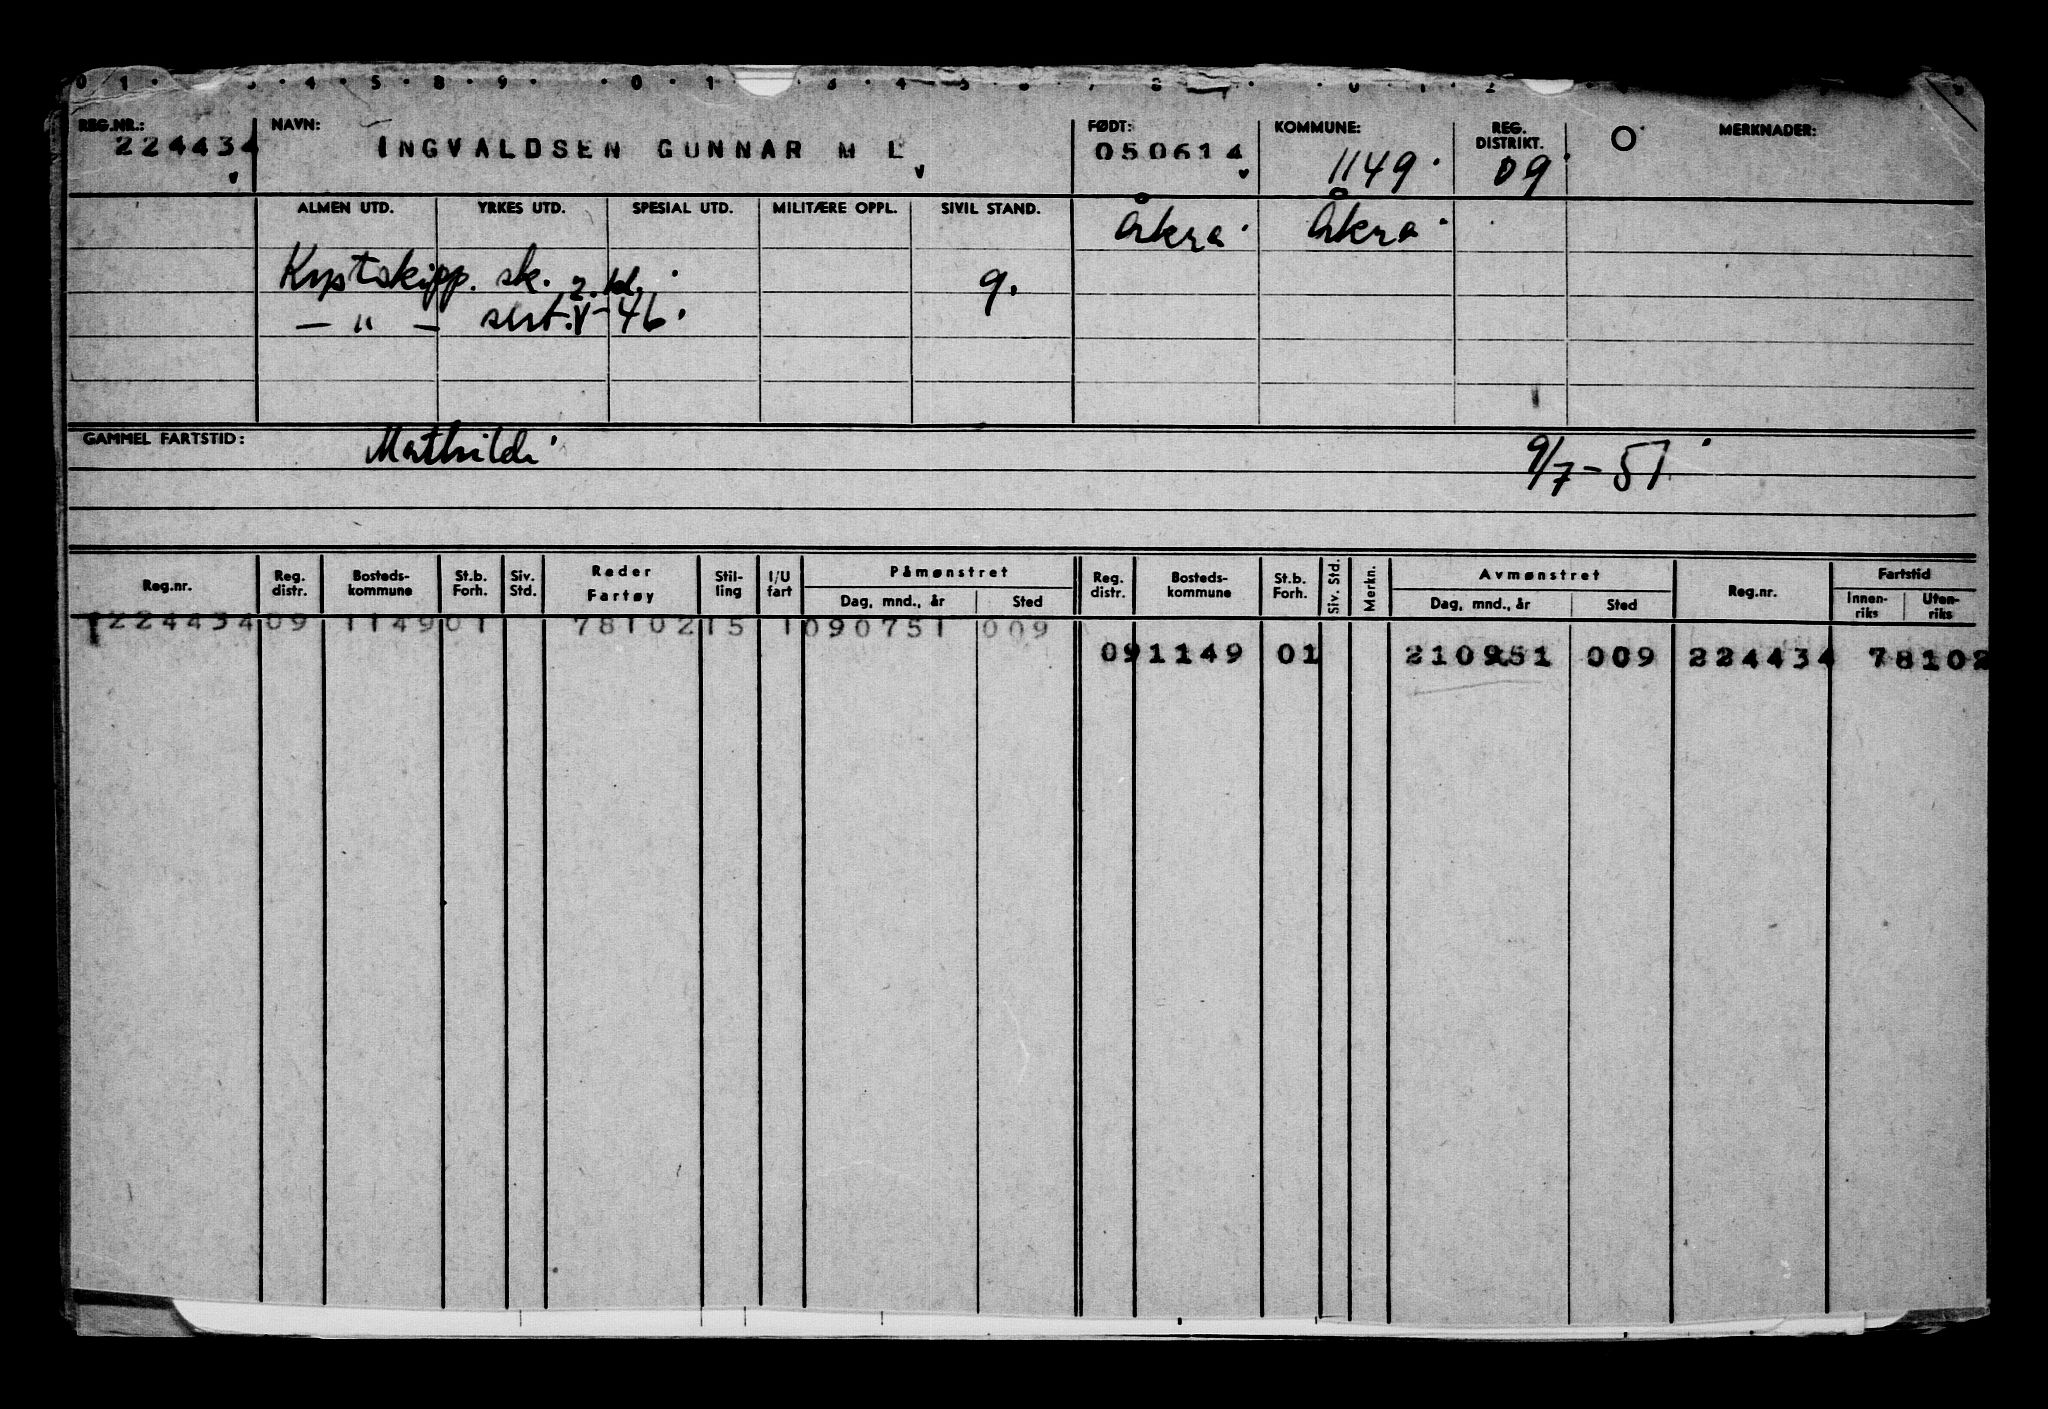 REG.NR.: NAVN: FØDT: KOMMUNE: REG. DISTRIKT. O MERKNADER:
224434 INGVALDSEN GUNNAR M L 050614 1149 09
ALMEN UTD. YRKES UTD. SPESIAL UTD. MILITÆRE OPPL. SIVIL STAND. Åkra Åkra
Kystskipp. sk. 2. kl. g.
— " — sert. V-46.
GAMMEL FARTSTID: Mathilde 9/7-51
Reg.nr. Reg. distr. Bosteds-kommune St.b. Forh. Siv. Std. Reder Fartøy Stil-ling I/U fart Påmønstret Dag, mnd., år Sted Reg. distr. Bosteds-kommune St.b. Forh. Siv. Std. Merkn. Avmønstret Dag, mnd., år Sted Reg.nr. Fartstid Innen-riks Uten-riks
224434 09 1149 01 78102 15 1 090751 009
09 1149 01 210951 009 224434 78102